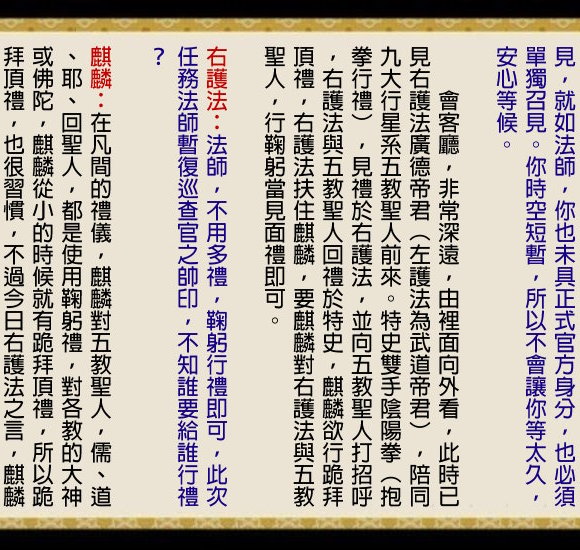 見，就如法師，你也未具正式官方身分，也必須
單獨召見。你時空短暫，所以不會讓你等太久，
安心等候。
會客廳，非常深遠，由裡面向外看，此時已
見右護法廣德帝君（左護法為武道帝君），陪同
九大行星系五教聖人前來。特史雙手陰陽拳（抱
拳行禮），見禮於右護法，並向五教聖人打招呼
，右護法與五教聖人回禮於特史，麒麟欲行跪拜
頂禮，右護法扶住麒麟，要麒麟對右護法與五教
聖人，行鞠躬當見面禮即可。
右護法：法師，不用多禮，鞠躬行禮即可，此次
任務法師暫復巡查官之帥印，不知誰要給誰行禮
？
麒麟：在凡間的禮儀，麒麟對五教聖人，儒、道
、耶、回聖人，都是使用鞠躬禮，對各教的大神
或佛陀，麒麟從小的時候就有跪拜頂禮，所以跪
拜頂禮，也很習慣，不過今日右護法之言，麒麟